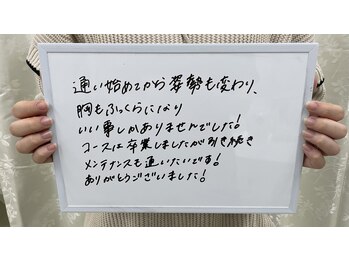 通い始めてから姿勢も変わり、
胸もふっくらになり
いい事しかありませんでした!
コースは卒業しましたが引き続き
メンテナンスも通いたいです!
ありがとうございました!